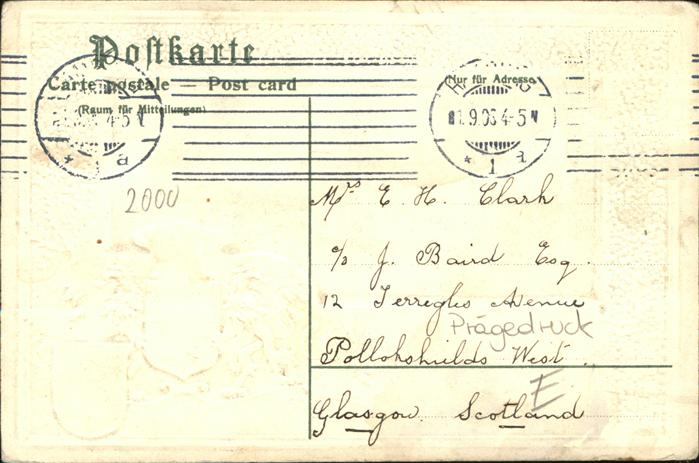 Postkarte
Carte postale — Post card
(Nur für Adresse)
(Raum für Mitteilungen)
4-5
.9.06 4-5 N
* 1 a
* 1 a
2000
Mrs E. H. Clark
c/o J. Baird Esq.
12 Terregles Avenue
Prägedruck
Pollokshields West.
E
Glasgow. Scotland